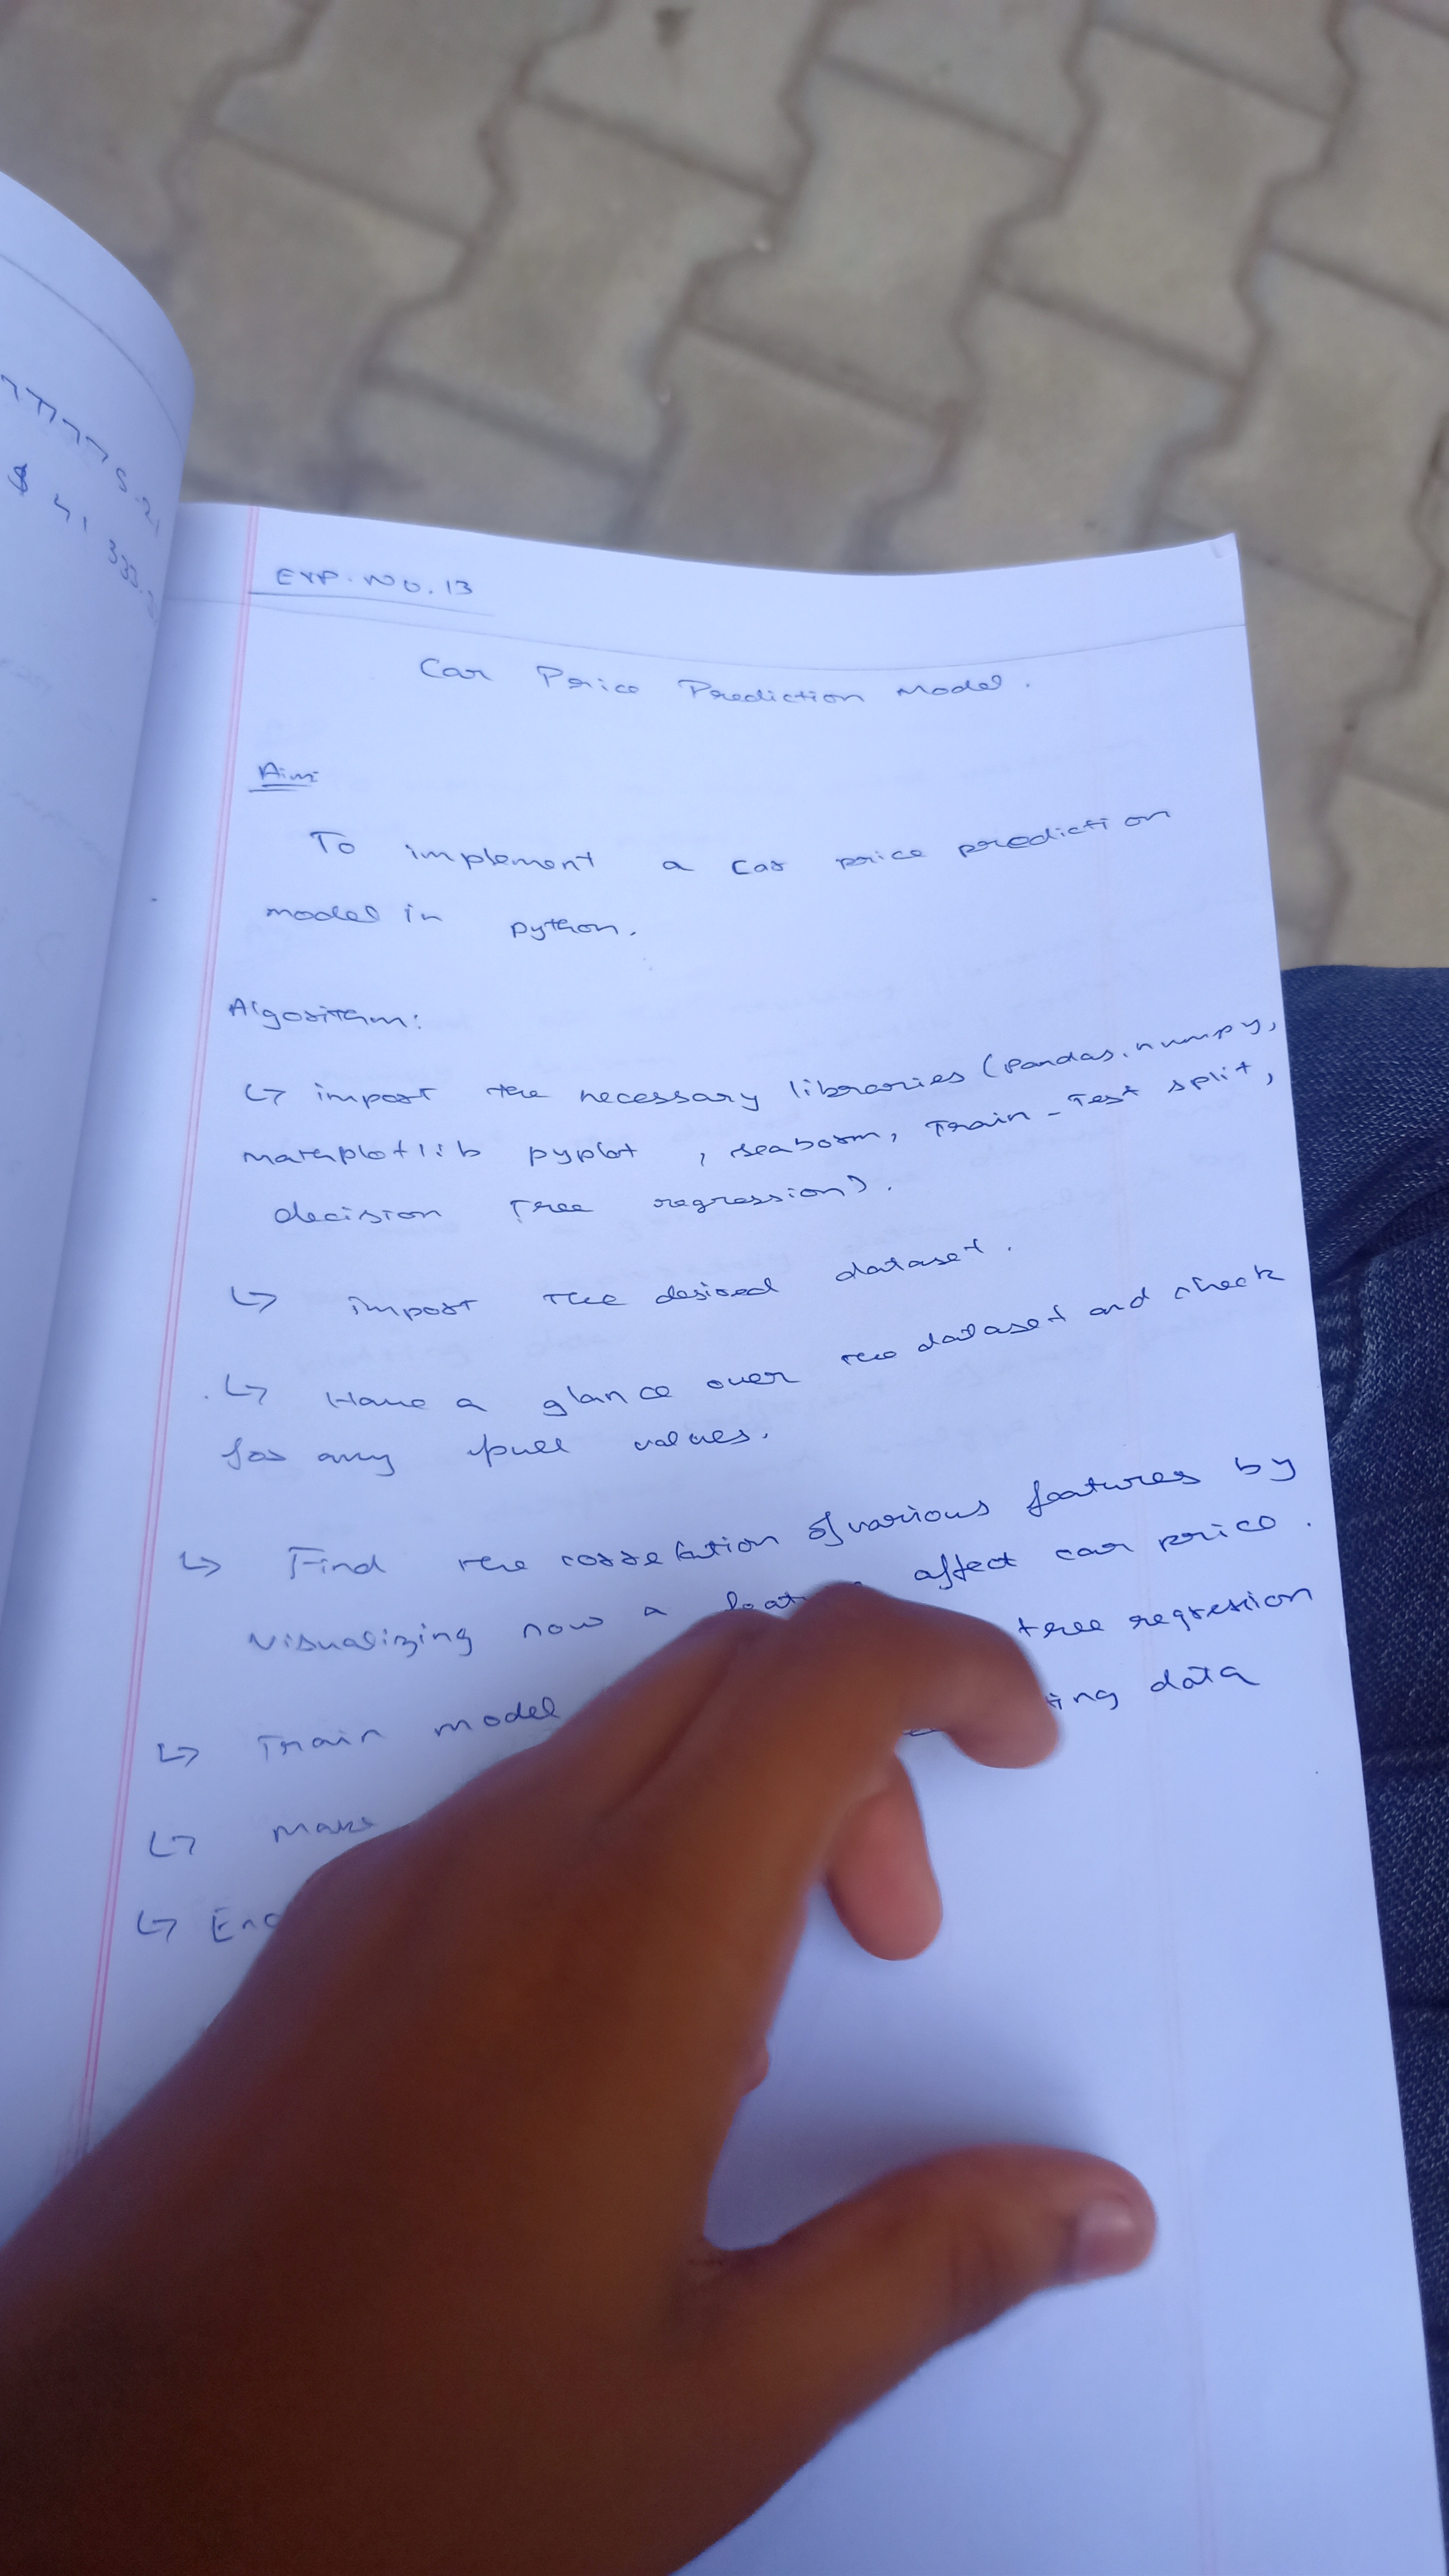 $ 41 333.
EXP. NO. 13
Car Price Prediction Model.
Aim:
To implement a car price prediction
model in python.
Algorithm:
↳ import the necessary libraries (pandas, numpy,
mathplotlib pyplot , seaborn, Train - Test split,
decision Tree regression).
↳ import the desired dataset.
↳ Have a glance over the dataset and check
for any null values.
↳ Find the correlation of various features by
visualizing how a affect car price.
↳ Train model tree regression
↳ Make data
↳